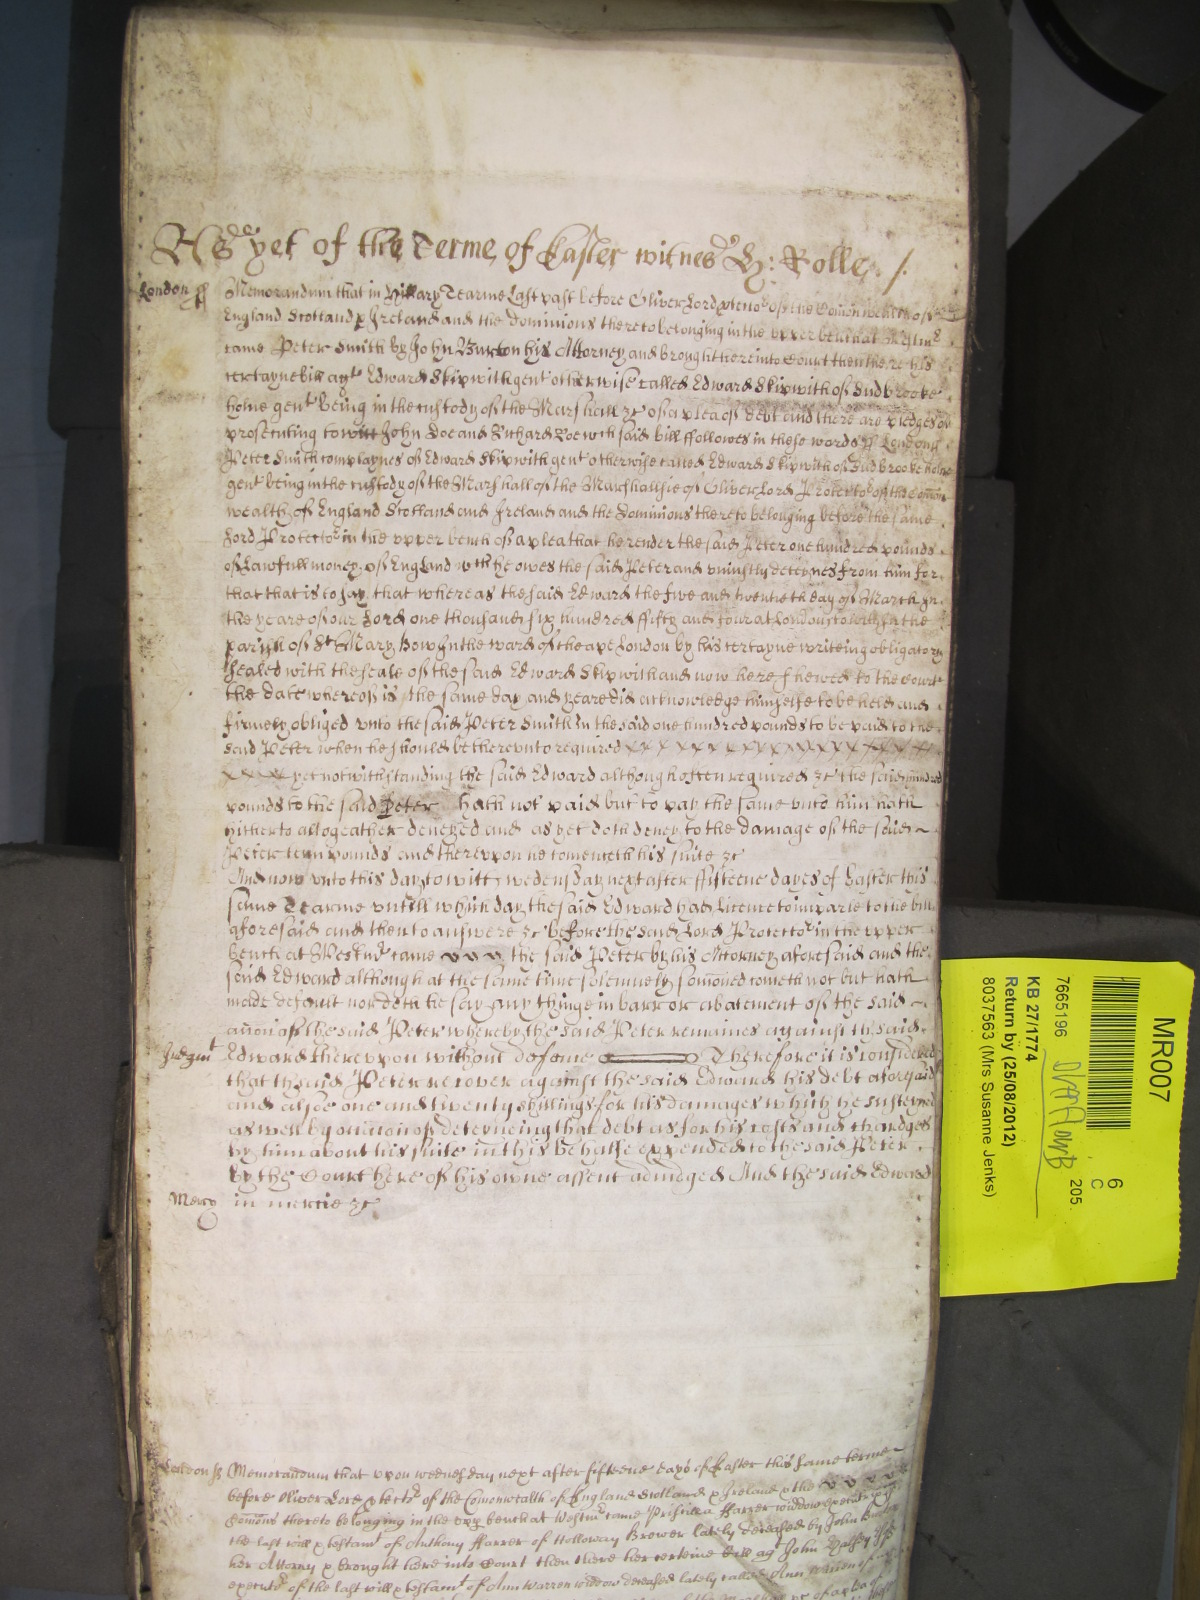 As yet of the Terme of Easter witnes H: Rolle /.
London ss Memorandum that in Hillary Tearme Last past before Oliver Lord protector of the Comonwealth of
England Scotland & Ireland and the dominions thereto belonging in the upper bench at Westmr
came Peter Smith by John Burton his Attorney and brought here into Court then there his
certayne bill agt Edward Skipwith gent otherwise called Edward Skipwith of Sudbrooke
holme gent being in the custody of the Marshall &c of a plea of debt and there are pledges of
prosecuting to witt John Doe and Richard Roe wch said bill ffollowes in these words ss London ss
Peter Smith complaynes of Edward Skipwith gent otherwise called Edward Skipwith of Sudbrooke holme
gent being in the custody of the Marshall of the Marshallsie of Oliver Lord Protector of the Comon
wealth of England Scotland and Ireland and the Dominions thereto belonging before the same
Lord Protector in the upper bench of a plea that he render the said Peter one hundred pounds
of Lawfull money of England wch he owes the said Peter and uniustly deteynes from him for
that that is to say that whereas the said Edward the five and twentieth day of March in
the yeare of our Lord one thousand six hundred ffifty and four at London to witt in the
parish of St Mary Bow in the ward of cheape London by his certayne writeing obligatory
sealed with the seale of the said Edward Skipwith and now here shewed to the Court
the date whereof is the same day and yeare did acknowledge himselfe to be held and
firmely obliged unto the said Peter Smith in the said one hundred pounds to be paid to the
said Peter when he should be thereunto required
yet notwithstanding the said Edward although often required &c the said hundred
pounds to the said Peter hath not paid but to pay the same unto him hath
hitherto altogeather denyed and as yet doth deney to the damage of the said
Peter tenn pounds and thereupon he comenceth his suite &c
And now unto this day to witt wedensday next after ffifteene dayes of Easter this
same Tearme untill which day the said Edward had Licence to imparle to the bill
aforesaid and then to answere &c before the said Lord Protector in the upper
bench at Westmr came the said Peter by his Attorney aforesaid and the
said Edward although at the same time solemnely somoned cometh not but hath
made default nor doth he say any thinge in barr or abatement of the said
accon of the said Peter whereby the said Peter remaines against the said
Judgmt Edward thereupon without defence Therefore it is considered
that the said Peter recover against the said Edward his debt aforesaid
and alsoe one and twenty shillings for his damages which he susteyned
as well by occasion of deteyneing that debt as for his costs and chardges
by him about his suite in this behalfe expended to the said Peter
by the Court here of his owne assent adiudged And the said Edward
Mercy in mercie &c
London ss Memorandum that upon wednesday next after fifteene dayes of Easter this same terme
before Oliver Lord protectr of the Comonwealth of England Scotland & Ireland & the
domions thereto belonging in the upp bench at Westmr came Priscilla Harrer widdow executrix of
the last will & testamt of Anthony Harrer of Holloway Brewer lately deceased by John
her Attorney & brought here into Court then there her certeine bill agt John
executr of the last will & testamt of Ann Warren widdow deceased lately called Ann Warren of
MR007
6
C
205.
7665196
KB 27/1774
Return by (25/08/2012)
8037563 (Mrs Susanne Jenks)